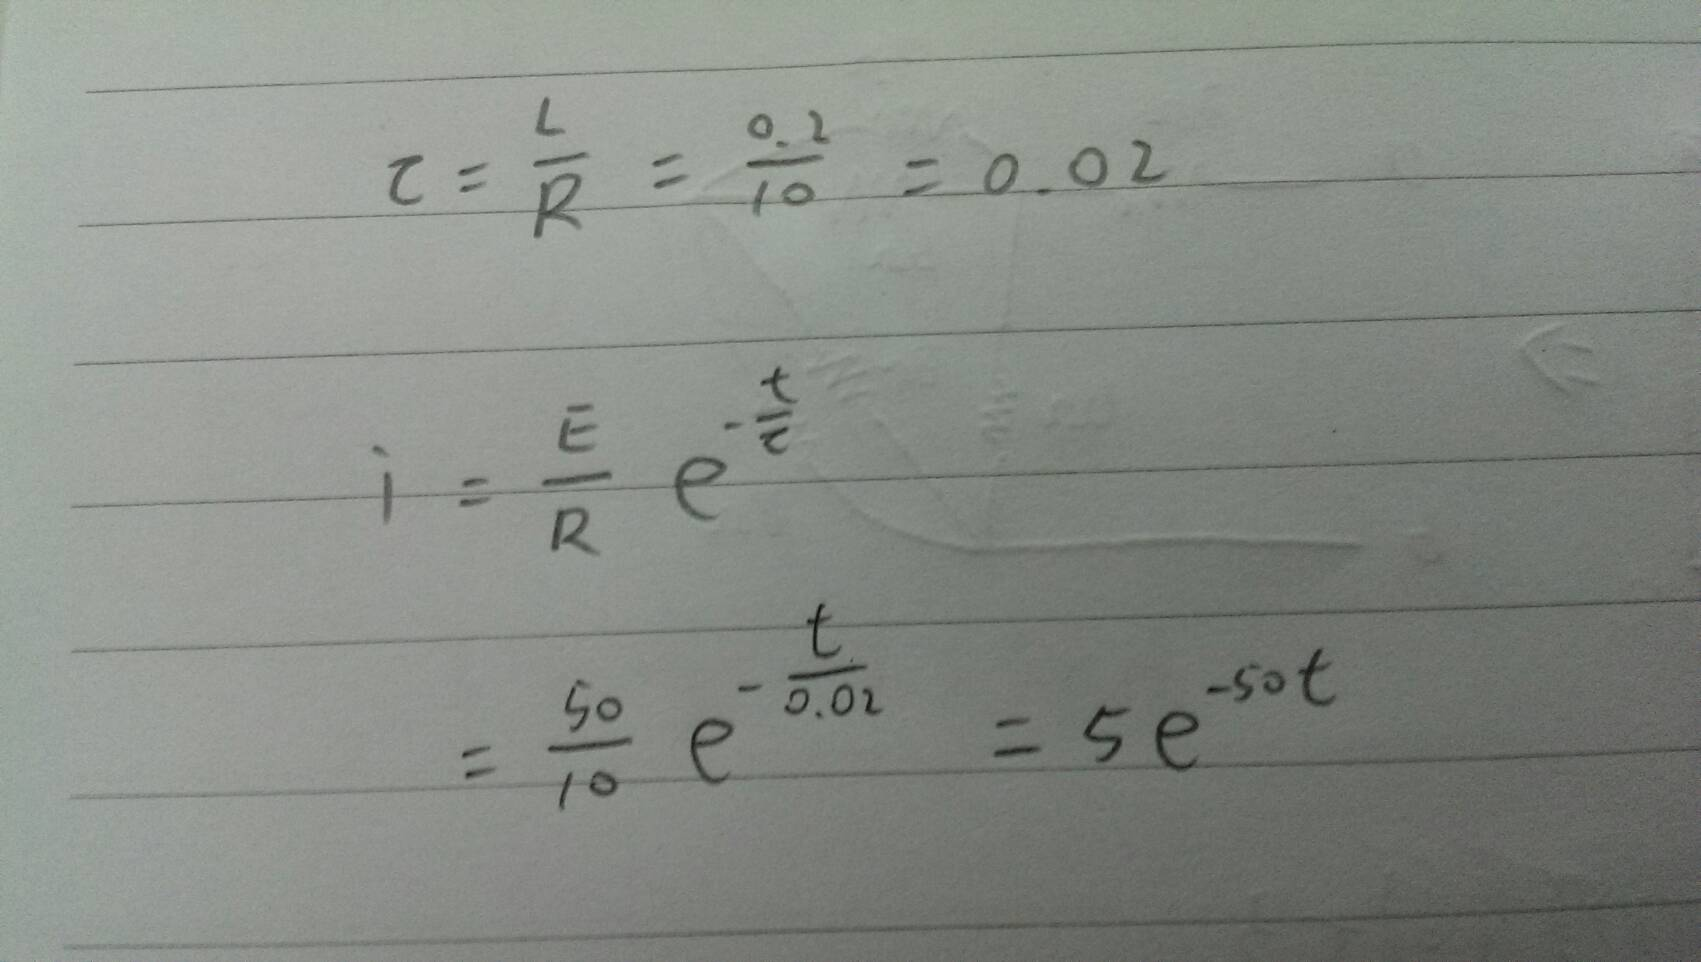 τ = L/R = 0.2/10 = 0.02
i = E/R e^(-t/τ)
= 50/10 e^(-t/0.02) = 5e^(-50t)